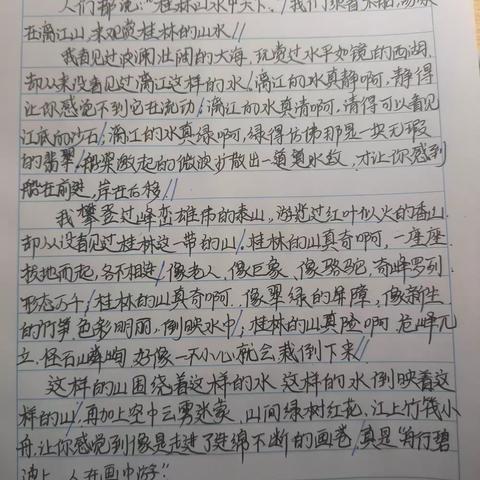 人们都说："桂林山水甲天下。"/我们乘着木船,荡漾
在漓江山,来观赏桂林的山水//
我看见过波澜壮阔的大海,玩赏过水平如镜的西湖,
却从来没看见过漓江这样的水/漓江的水真静啊,静得
让你感觉不到它在流动/漓江的水真清啊,清得可以看见
江底的沙石/漓江的水真绿啊,绿得仿佛那是一块无瑕
的翡翠/船桨激起的微波扩散出一道道水纹,才让你感到
船在前进,岸在后移//
我攀登过峰峦雄伟的泰山,游览过红叶似火的香山,
却从没看见过桂林这一带的山/桂林的山真奇啊,一座座
拔地而起,各不相连/像老人、像巨象、像骆驼,奇峰罗列,
形态万千/桂林的山真奇啊,像翠绿的屏障,像新生
的竹笋,色彩明丽,倒映水中/桂林的山真险啊,危峰兀
立,怪石嶙峋,好像一不小心就会栽倒下来//
这样的山围绕着这样的水,这样的水倒映着这
样的山/再加上空中云雾迷蒙,山间绿树红花,江上竹筏小
舟,让你感觉到像是走进了连绵不断的画卷/真是"舟行碧
波上,人在画中游"